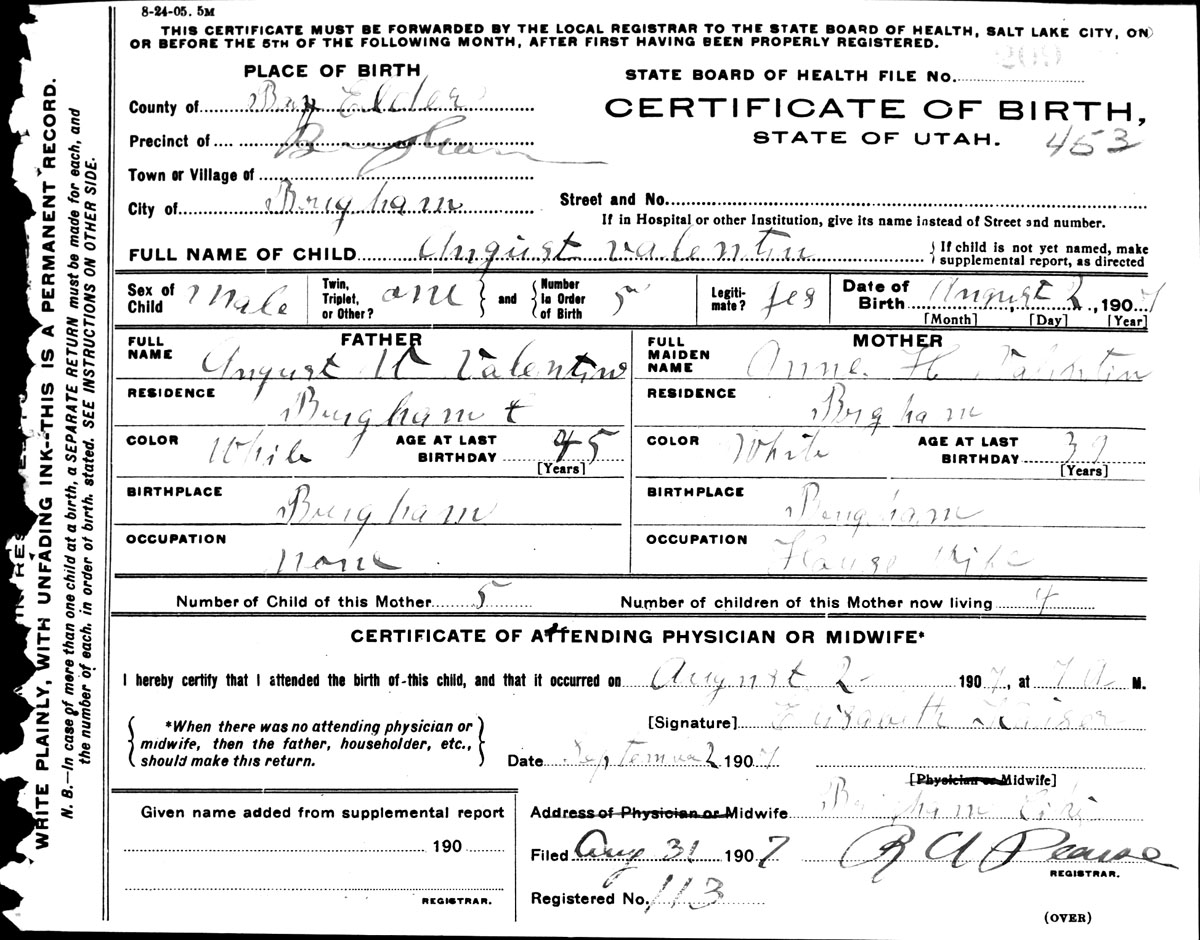 8-24-05. 5M
THIS CERTIFICATE MUST BE FORWARDED BY THE LOCAL REGISTRAR TO THE STATE BOARD OF HEALTH, SALT LAKE CITY, ON
OR BEFORE THE 5TH OF THE FOLLOWING MONTH, AFTER FIRST HAVING BEEN PROPERLY REGISTERED.
PLACE OF BIRTH
County of Box Elder
Precinct of Brigham
Town or Village of
City of Brigham
STATE BOARD OF HEALTH FILE No.
CERTIFICATE OF BIRTH,
STATE OF UTAH. 453
Street and No.
If in Hospital or other Institution, give its name instead of Street and number.
FULL NAME OF CHILD August Valentin { If child is not yet named, make
supplemental report, as directed
Sex of Child Male
Twin, Triplet, or Other? one } and { Number in Order of Birth 5
Legitimate? yes
Date of Birth August 2, 1907
[Month] [Day] [Year]
FATHER
FULL NAME August Valentin
RESIDENCE Brigham
COLOR White AGE AT LAST BIRTHDAY 45
[Years]
BIRTHPLACE Brigham
OCCUPATION none
MOTHER
FULL MAIDEN NAME Anne H Valentin
RESIDENCE Brgham
COLOR White AGE AT LAST BIRTHDAY 39
[Years]
BIRTHPLACE Brigham
OCCUPATION House Wife
Number of Child of this Mother 5 Number of children of this Mother now living 4
CERTIFICATE OF ATTENDING PHYSICIAN OR MIDWIFE*
I hereby certify that I attended the birth of this child, and that it occurred on August 2 1907, at 7 A M.
{ *When there was no attending physician or
midwife, then the father, householder, etc.,
should make this return. }
[Signature] Elisabeth Kaiser
Date September 2 1907
[Physician or Midwife]
Address of Physician or Midwife Brigham Citi
Given name added from supplemental report
190
REGISTRAR.
Filed Aug 31 1907 R A Pearse
REGISTRAR.
Registered No. 113
(OVER)
WRITE PLAINLY, WITH UNFADING INK--THIS IS A PERMANENT RECORD.
N. B.—In case of more than one child at a birth, a SEPARATE RETURN must be made for each, and
the number of each, in order of birth, stated. SEE INSTRUCTIONS ON OTHER SIDE.